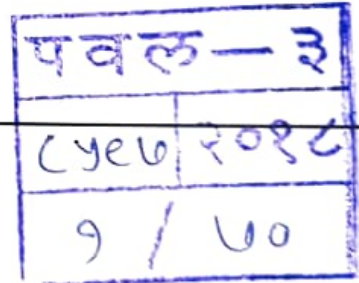 पवल — ३
८५९७ २०१८
१ / ७०